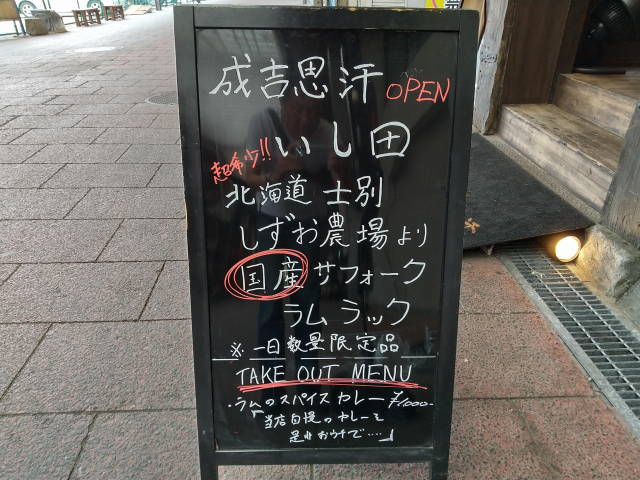 成吉思汗 OPEN
いし田
超希少!!
北海道 士別
しずお農場より
国産サフォーク
ラムラック
※一日数量限定品
TAKE OUT MENU
・ラムのスパイスカレー ¥1000-
「当店自慢のカレーを
是非おウチで……」